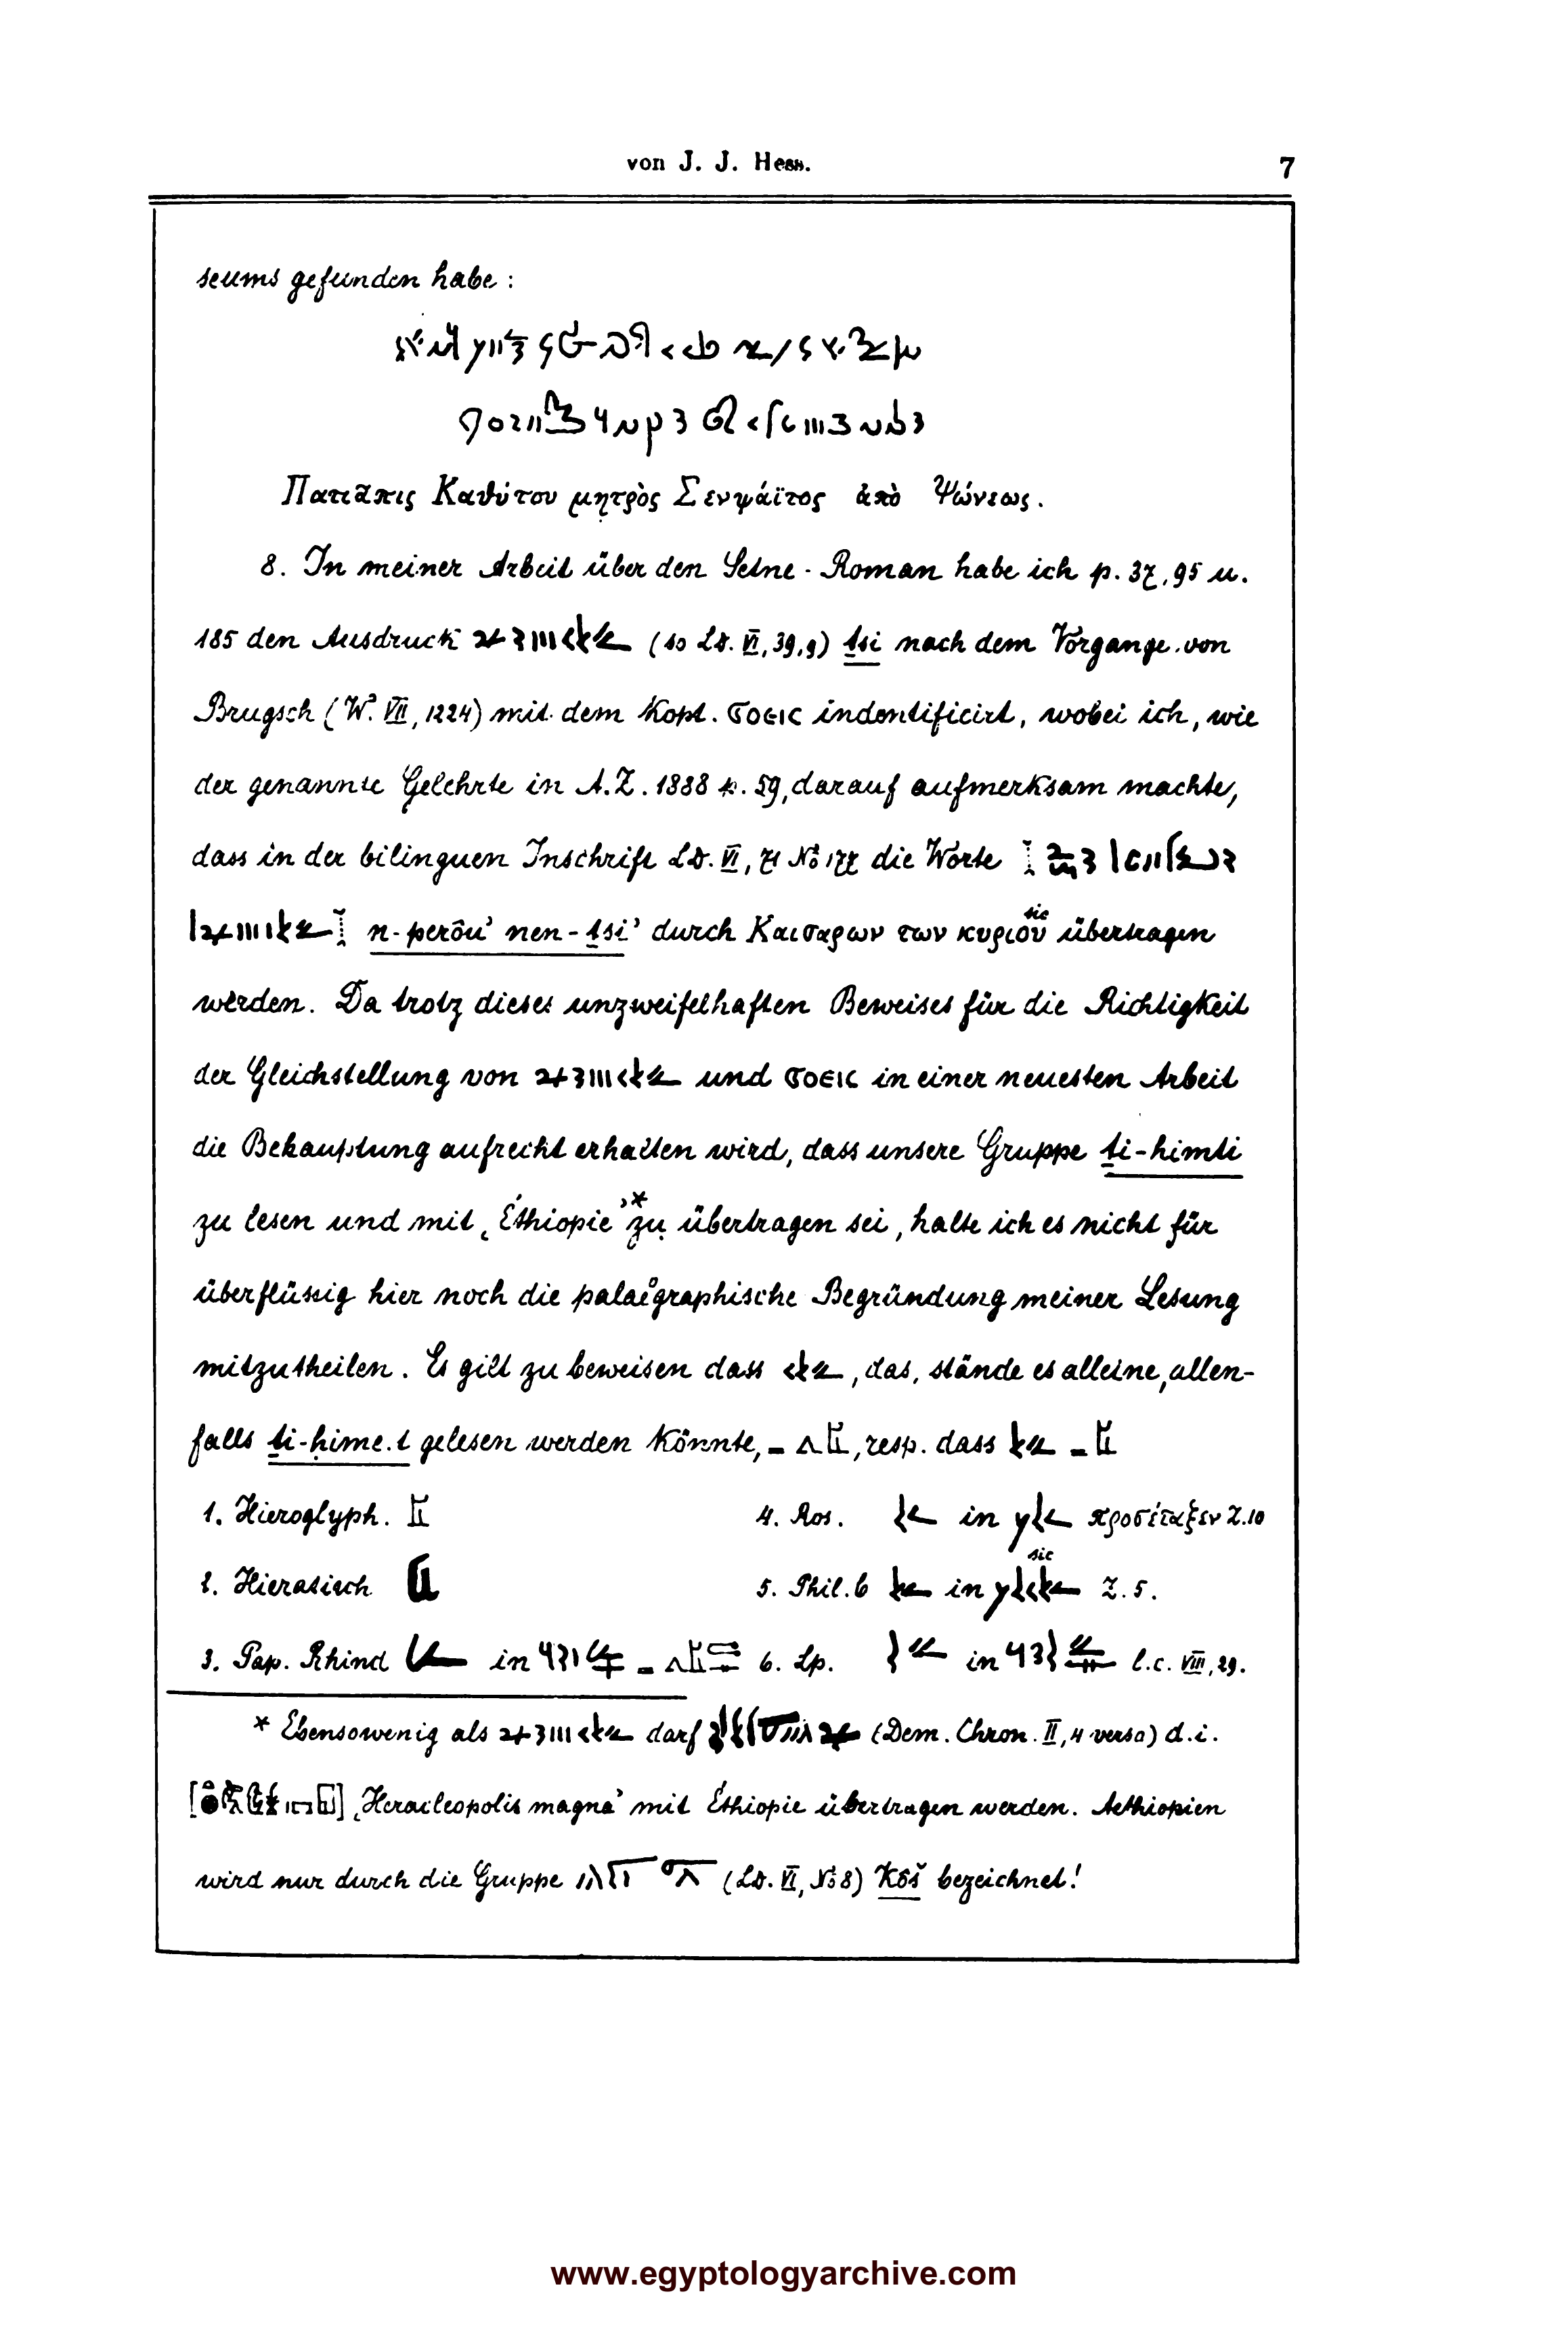 von J. J. Hess. 7
seums gefunden habe :
Πατιᾶπις Καθύτου μητρὸς Σενψάϊτος ἀπὸ Ψώνεως.
8. In meiner Arbeit über den Setne - Roman habe ich p. 37, 95 u.
185 den Ausdruck (so LD. VI, 39,9) tsi nach dem Vorgange von
Brugsch (W. VII, 1224) mit dem Kopt. ϭοεις indentificirt, wobei ich, wie
der genannte Gelehrte in A.Z. 1888 p. 59, darauf aufmerksam machte,
dass in der bilinguen Inschrift LD. VI, 71 No 177 die Worte
n-perôu' nen-tsi' durch Καισαρων των κυριου sic übertragen
werden. Da trotz dieses unzweifelhaften Beweises für die Richtigkeit
der Gleichstellung von und ϭοεις in einer neuesten Arbeit
die Behauptung aufrecht erhalten wird, dass unsere Gruppe ti-himti
zu lesen und mit ‚Éthiopie'* zu übertragen sei, halte ich es nicht für
überflüssig hier noch die palaeographische Begründung meiner Lesung
mitzutheilen. Es gilt zu beweisen dass , das, stände es alleine, allen-
falls ti-hime.t gelesen werden könnte, = , resp. dass =
1. Hieroglyph. 4. Ros. in προσέταξεν Z.10
2. Hieratisch 5. Phil. b in sic Z. 5.
3. Pap. Rhind in = 6. Lp. in l.c. VIII, 29.
* Ebensowenig als darf (Dem. Chron. II, 4 verso) d.i.
[ ] ‚Heracleopolis magna' mit Éthiopie übertragen werden. Aethiopien
wird nur durch die Gruppe (LD. VI, No 8) Kôš bezeichnet!
www.egyptologyarchive.com